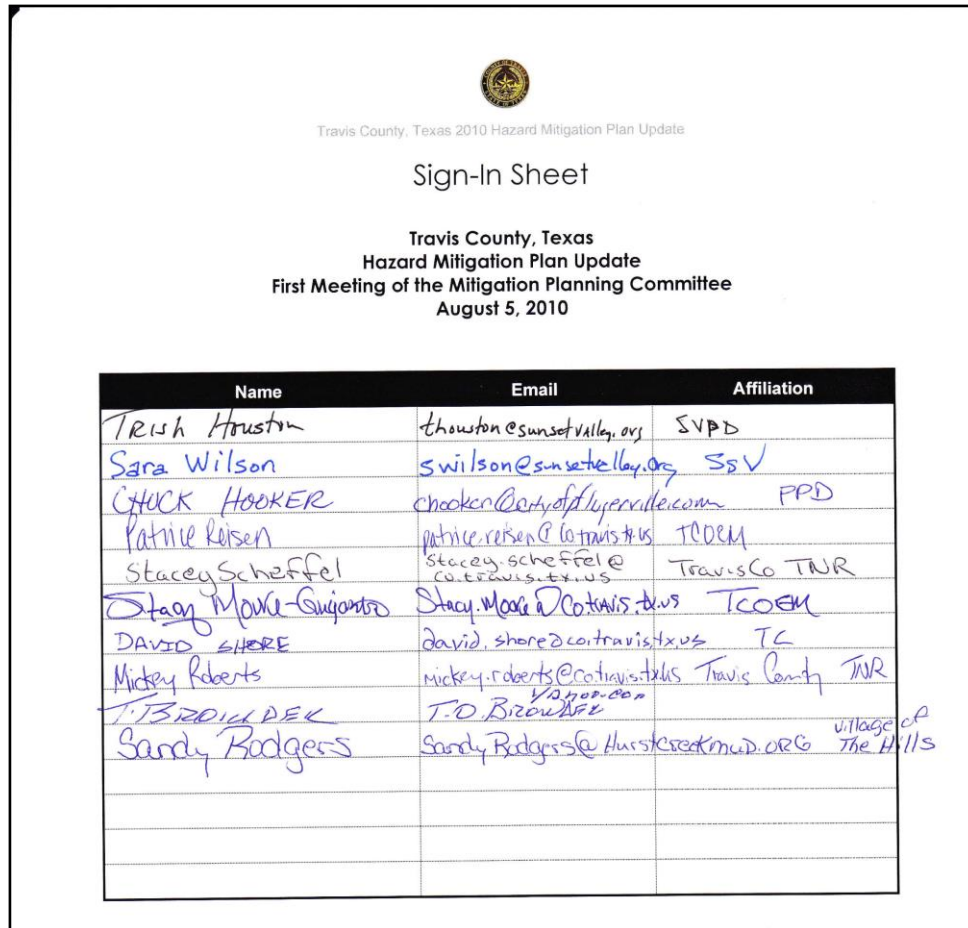 Travis County, Texas 2010 Hazard Mitigation Plan Update
Sign-In Sheet
Travis County, Texas
Hazard Mitigation Plan Update
First Meeting of the Mitigation Planning Committee
August 5, 2010
Name Email Affiliation
Trish Houston thouston@sunsetvalley.org SVPD
Sara Wilson swilson@sunsetvalley.org SSV
CHUCK HOOKER chooker@cityofpflugerville.com PPD
Patrice Reisen patrice.reisen@co.travis.tx.us TCOEM
Stacey Scheffel stacey.scheffel@
co.travis.tx.us TravisCo TNR
Stacy Moore- Stacy.Moore@co.travis.tx.us TCOEM
DAVID SHORE david.shore@co.travis.tx.us TC
Mickey Roberts mickey.roberts@co.travis.tx.us Travis County TNR
yahoo.com
T. BROWDER T.O. BROWDER
Sandy Rodgers SandyRodgers@HurstcreekmuD.ORG village of
The Hills